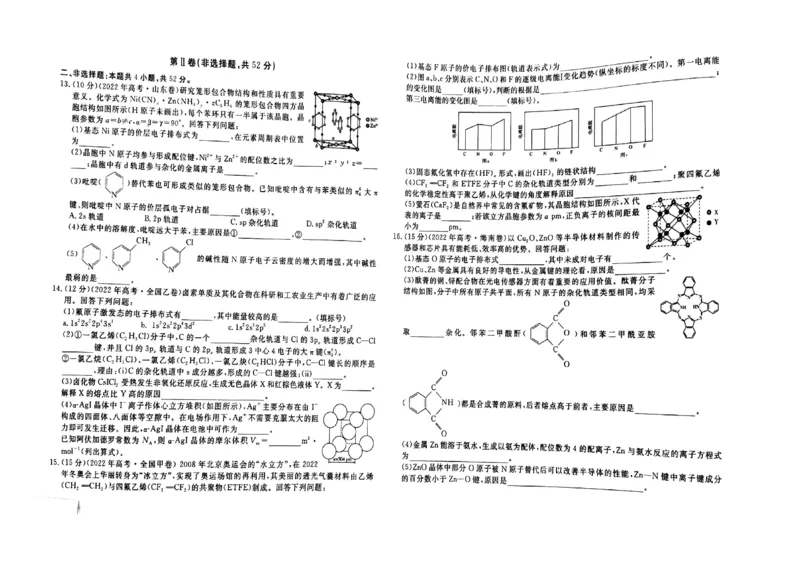 第Ⅱ卷(非选择题,共52分)
二、非选择题:本题共4小题,共52分。
13.(10分)(2022年高考·山东卷)研究笼形包合物结构和性质具有重要
意义。化学式为Ni(CN)ₓ·Zn(NH₃)ᵧ·zC₆H₆的笼形包合物四方晶
胞结构如图所示(H原子未画出),每个苯环只有一半属于该晶胞。晶
胞参数为a=b≠c,α=β=γ=90°。回答下列问题:
(1)基态Ni原子的价层电子排布式为______,在元素周期表中位置
为______。
(2)晶胞中N原子均参与形成配位键,Ni²⁺与Zn²⁺的配位数之比为______;x:y:z=
______;晶胞中有d轨道参与杂化的金属离子是______。
(3)吡啶( N )替代苯也可形成类似的笼形包合物。已知吡啶中含有与苯类似的π⁶₆大π
键、则吡啶中N原子的价层孤电子对占据______(填标号)。
A. 2s轨道 B. 2p轨道 C. sp杂化轨道 D. sp²杂化轨道
(4)在水中的溶解度,吡啶远大于苯,主要原因是①______,②______。
CH₃ Cl
(5) N 、 N 、 N 的碱性随N原子电子云密度的增大而增强,其中碱性
最弱的是______。
14.(12分)(2022年高考·全国乙卷)卤素单质及其化合物在科研和工农业生产中有着广泛的应
用。回答下列问题:
(1)氟原子激发态的电子排布式有______,其中能量较高的是______。(填标号)
a. 1s²2s²2p⁴3s¹ b. 1s²2s²2p⁴3d² c. 1s²2s¹2p⁵ d. 1s²2s²2p³3p²
(2)①一氯乙烯(C₂H₃Cl)分子中,C的一个______杂化轨道与Cl的3pₓ轨道形成C—Cl
______键,并且Cl的3p_z轨道与C的2p_z轨道形成3中心4电子的大π键(π⁴₃)。
②一氯乙烷(C₂H₅Cl)、一氯乙烯(C₂H₃Cl)、一氯乙炔(C₂HCl)分子中,C—Cl键长的顺序是
______,理由:(ⅰ)C的杂化轨道中s成分越多,形成的C—Cl键越强;(ⅱ)______。
(3)卤化物CsICl₂受热发生非氧化还原反应,生成无色晶体X和红棕色液体Y。X为______。
解释X的熔点比Y高的原因______。
(4)α-AgI晶体中I⁻离子作体心立方堆积(如图所示),Ag⁺主要分布在由I⁻
构成的四面体、八面体等空隙中。在电场作用下,Ag⁺不需要克服太大的阻
力即可发生迁移。因此,α-AgI晶体在电池中可作为______。
已知阿伏加德罗常数为N_A,则α-AgI晶体的摩尔体积V_m=______m³·
mol⁻¹(列出算式)。
504 pm
15.(15分)(2022年高考·全国甲卷)2008年北京奥运会的“水立方”,在2022
年冬奥会上华丽转身为“冰立方”,实现了奥运场馆的再利用,其美丽的透光气囊材料由乙烯
(CH₂═CH₂)与四氟乙烯(CF₂═CF₂)的共聚物(ETFE)制成。回答下列问题:
(1)基态F原子的价电子排布图(轨道表示式)为______。
(2)图a、b、c分别表示C、N、O和F的逐级电离能I变化趋势(纵坐标的标度不同)。第一电离能
的变化图是______(填标号),判断的根据是______;
第三电离能的变化图是______(填标号)。
电离能 C N O F 图a
电离能 C N O F 图b
电离能 C N O F 图c
(3)固态氟化氢中存在(HF)ₙ形式,画出(HF)₃的链状结构______。
(4)CF₂═CF₂和ETFE分子中C的杂化轨道类型分别为______和______;聚四氟乙烯
的化学稳定性高于聚乙烯,从化学键的角度解释原因______。
(5)萤石(CaF₂)是自然界中常见的含氟矿物,其晶胞结构如图所示,X代
表的离子是______;若该立方晶胞参数为a pm,正负离子的核间距最
小为______pm。
X
Y
16.(15分)(2022年高考·海南卷)以Cu₂O、ZnO等半导体材料制作的传
感器和芯片具有能耗低、效率高的优势。回答问题:
(1)基态O原子的电子排布式______,其中未成对电子有______个。
(2)Cu、Zn等金属具有良好的导电性,从金属键的理论看,原因是______。
(3)酞菁的铜、锌配合物在光电传感器方面有着重要的应用价值。酞菁分子
结构如图,分子中所有原子共平面,所有N原子的杂化轨道类型相同,均采
取______杂化。邻苯二甲酸酐( O O O )和邻苯二甲酰亚胺
( O NH O )都是合成菁的原料,后者熔点高于前者,主要原因是______。
(4)金属Zn能溶于氨水,生成以氨为配体,配位数为4的配离子,Zn与氨水反应的离子方程式
为______。
(5)ZnO晶体中部分O原子被N原子替代后可以改善半导体的性能,Zn—N键中离子键成分
的百分数小于Zn—O键,原因是______。